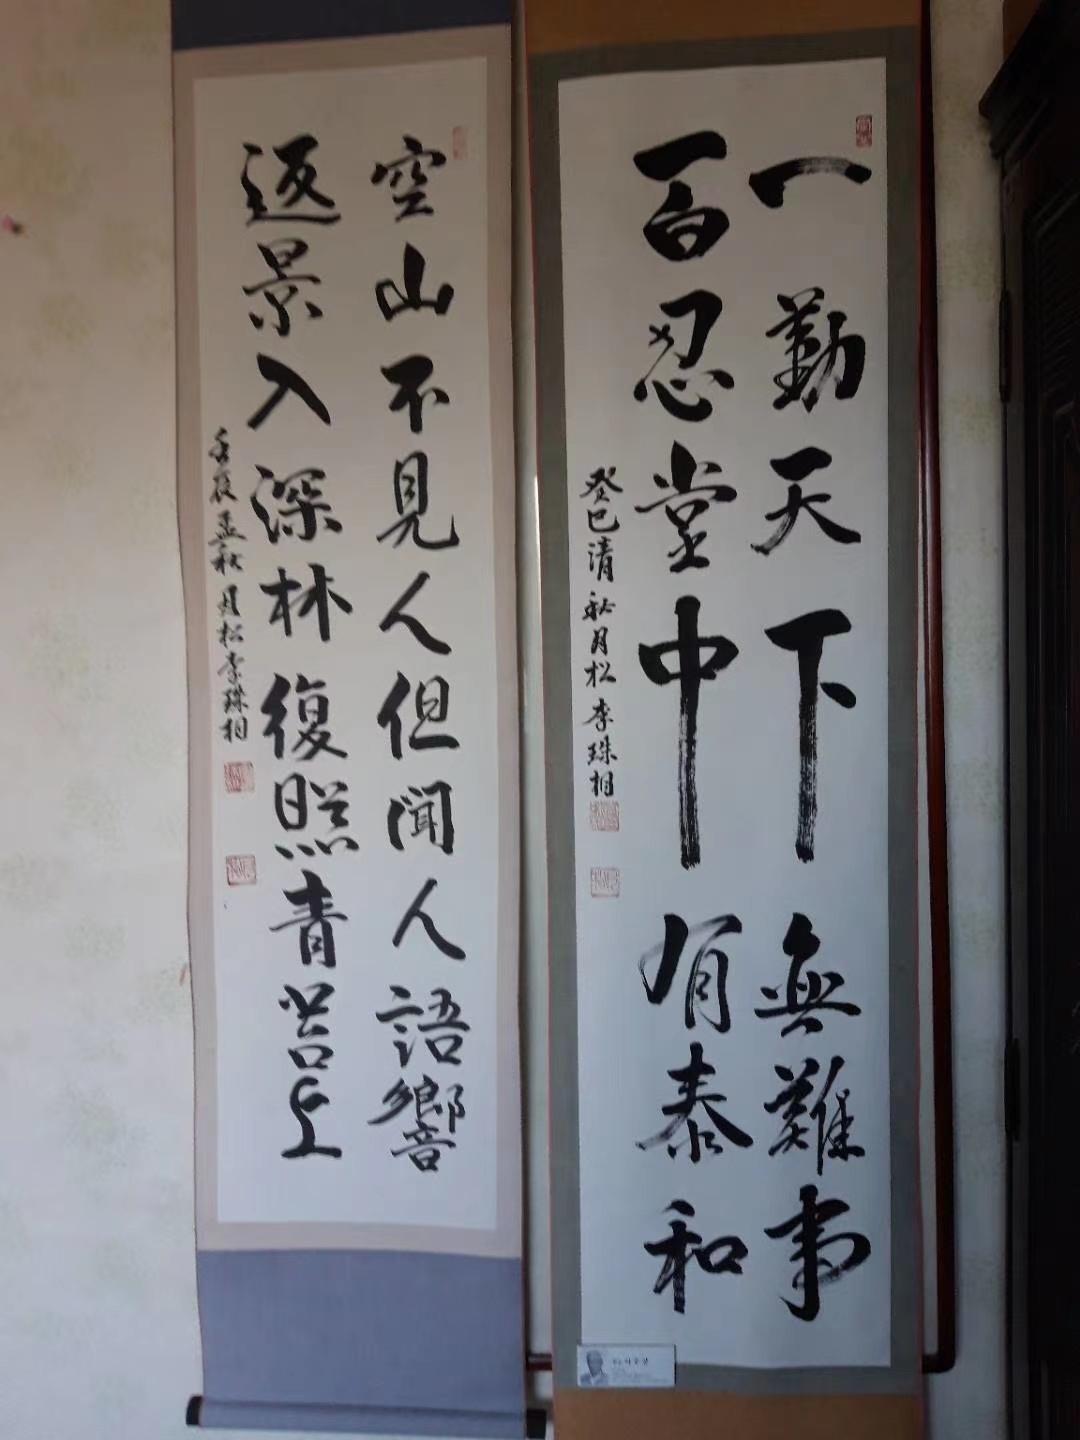 一勤天下無難事
百忍堂中有泰和
癸巳清秋月松李珠相
空山不見人但聞人語響
返景入深林復照青苔上
壬辰孟秋月松李珠相